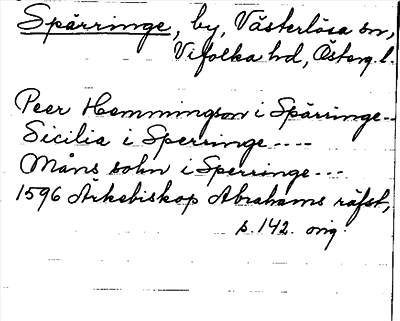 Spärringe, by, Västerlösa sn,
Vifolka hd, Österg. l.
Peer Hemmingson i Spärringe--
Sicilia i Sperringe ----
Måns sohn i Sperringe ---
1596 Arkebiskop Abrahams räfst,
s. 142. orig.